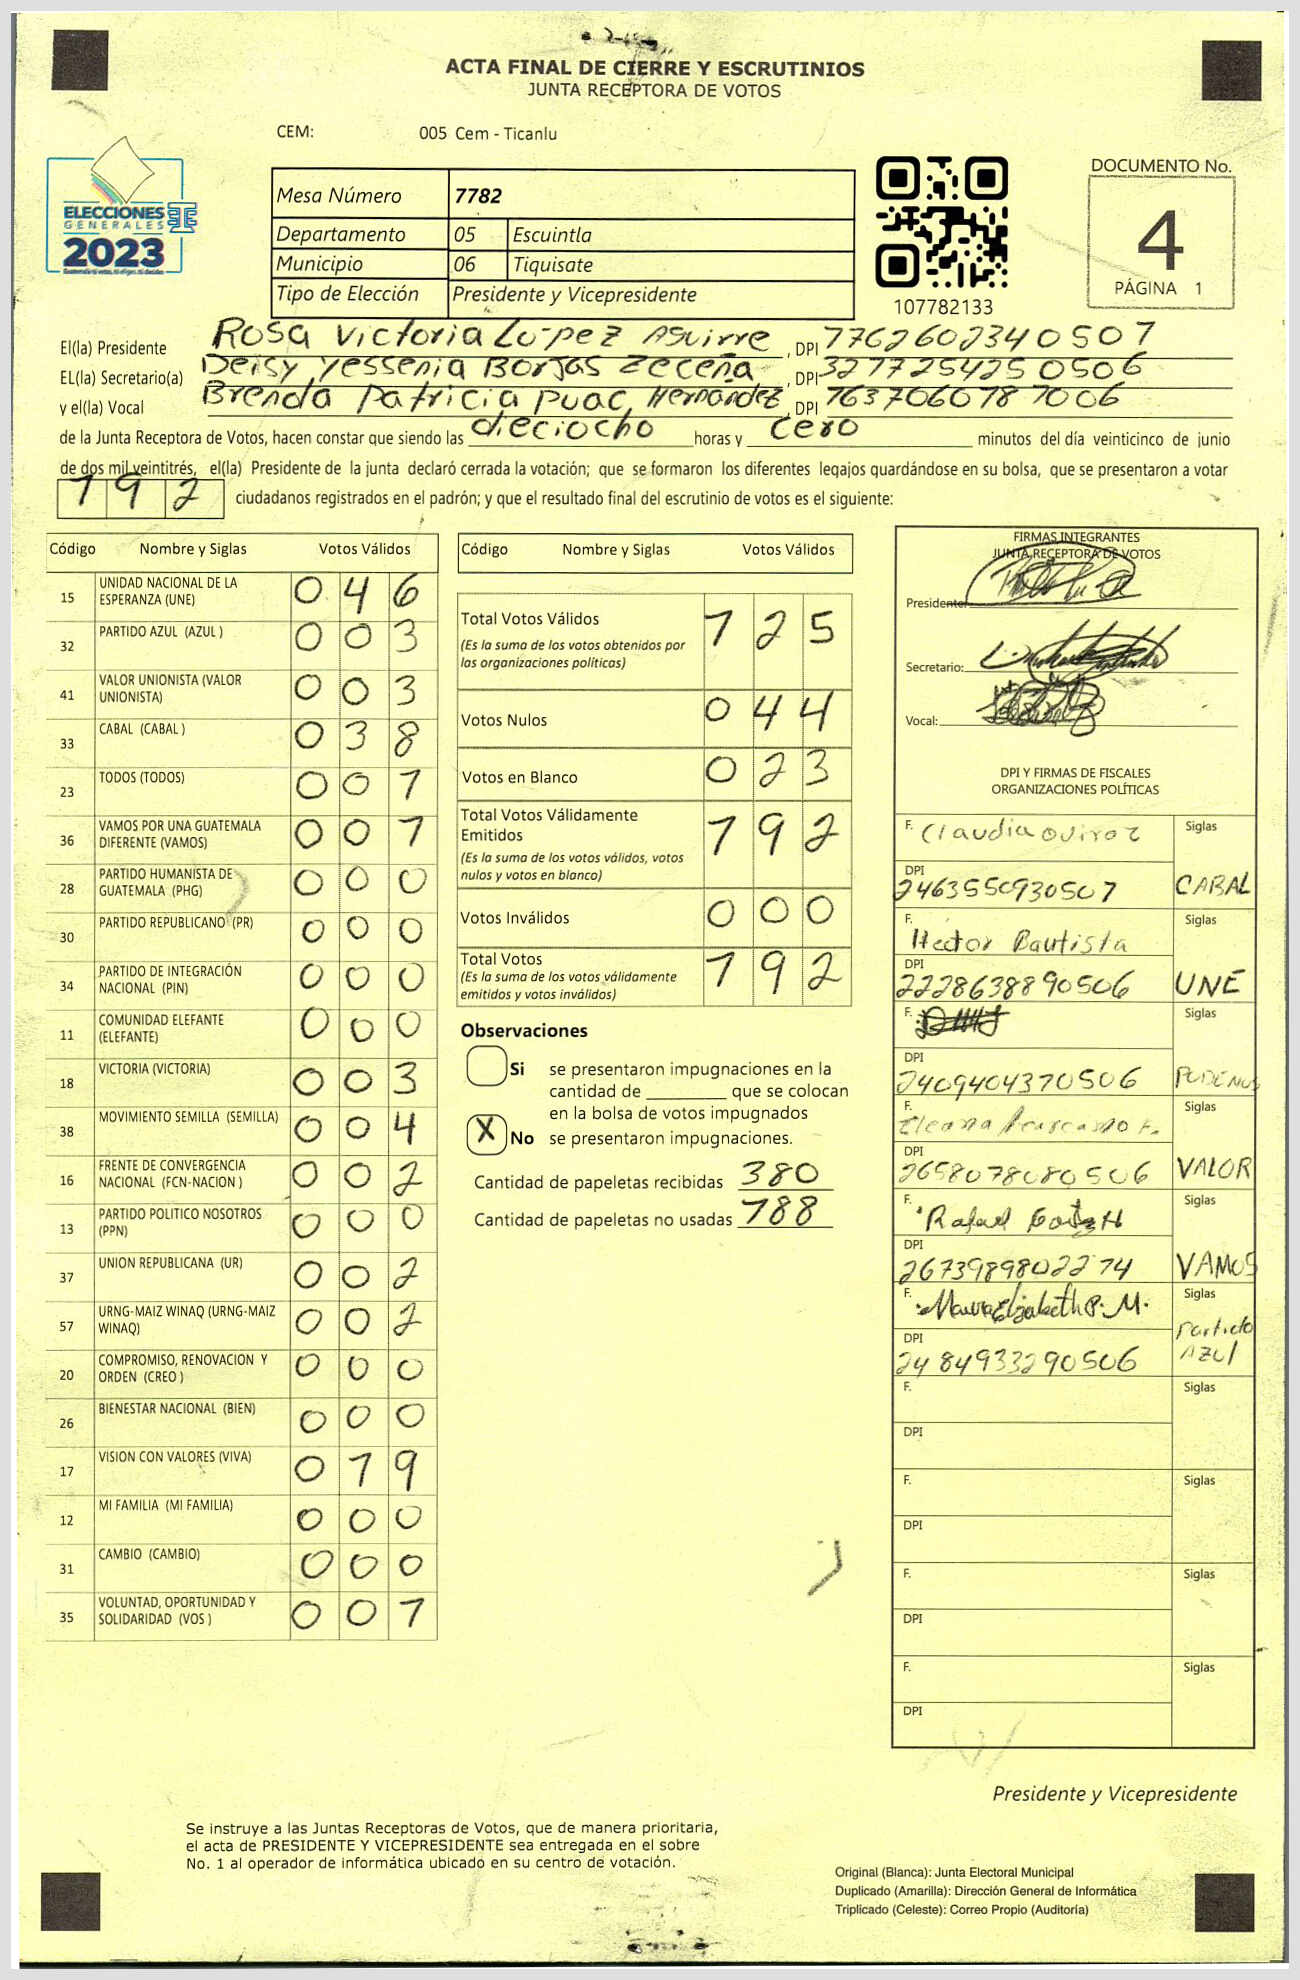 ACTA FINAL DE CIERRE Y ESCRUTINIOS
JUNTA RECEPTORA DE VOTOS
CEM: 005 Cem - Ticanlu
ELECCIONES
GENERALES
2023
Mesa Número 7782
Departamento 05 Escuintla
Municipio 06 Tiquisate
Tipo de Elección Presidente y Vicepresidente
107782133
DOCUMENTO No.
4
PÁGINA 1
El(la) Presidente Rosa Victoria López Aguirre, DPI
EL(la) Secretario(a) Deisy Yessenia Borjas Zeceña, DPI
y el(la) Vocal Brenda Patricia Puac Hernández, DPI
de la Junta Receptora de Votos, hacen constar que siendo las dieciocho horas y cero minutos del día veinticinco de junio
de dos mil veintitrés, el(la) Presidente de la junta declaró cerrada la votación; que se formaron los diferentes legajos guardándose en su bolsa, que se presentaron a votar
192 ciudadanos registrados en el padrón; y que el resultado final del escrutinio de votos es el siguiente:
Código Nombre y Siglas Votos Válidos
15 UNIDAD NACIONAL DE LA ESPERANZA (UNE) 046
32 PARTIDO AZUL (AZUL ) 003
41 VALOR UNIONISTA (VALOR UNIONISTA) 003
33 CABAL (CABAL ) 038
23 TODOS (TODOS) 001
36 VAMOS POR UNA GUATEMALA DIFERENTE (VAMOS) 001
28 PARTIDO HUMANISTA DE GUATEMALA (PHG) 000
30 PARTIDO REPUBLICANO (PR) 000
34 PARTIDO DE INTEGRACIÓN NACIONAL (PIN) 000
11 COMUNIDAD ELEFANTE (ELEFANTE) 000
18 VICTORIA (VICTORIA) 003
38 MOVIMIENTO SEMILLA (SEMILLA) 004
16 FRENTE DE CONVERGENCIA NACIONAL (FCN-NACION ) 002
13 PARTIDO POLITICO NOSOTROS (PPN) 000
37 UNION REPUBLICANA (UR) 002
57 URNG-MAIZ WINAQ (URNG-MAIZ WINAQ) 002
20 COMPROMISO, RENOVACION Y ORDEN (CREO ) 000
26 BIENESTAR NACIONAL (BIEN) 000
17 VISION CON VALORES (VIVA) 019
12 MI FAMILIA (MI FAMILIA) 000
31 CAMBIO (CAMBIO) 000
35 VOLUNTAD, OPORTUNIDAD Y SOLIDARIDAD (VOS ) 001
Código Nombre y Siglas Votos Válidos
Total Votos Válidos 125
(Es la suma de los votos obtenidos por
las organizaciones políticas)
Votos Nulos 044
Votos en Blanco 023
Total Votos Válidamente
Emitidos 192
(Es la suma de los votos válidos, votos
nulos y votos en blanco)
Votos Inválidos 000
Total Votos 192
(Es la suma de los votos válidamente
emitidos y votos inválidos)
Observaciones
Si se presentaron impugnaciones en la
cantidad de ________ que se colocan
en la bolsa de votos impugnados
X No se presentaron impugnaciones.
Cantidad de papeletas recibidas 380
Cantidad de papeletas no usadas 188
FIRMAS INTEGRANTES
JUNTA RECEPTORA DE VOTOS
Presidente:
Secretario:
Vocal:
DPI Y FIRMAS DE FISCALES
ORGANIZACIONES POLÍTICAS
F. Claudia Quiroz Siglas
DPI CABAL
F. Hector Bautista Siglas
DPI 2228638890506 UNE
F. Siglas
DPI 2409404370506 PODEMOS
F. Siglas
DPI 2658078080506 VALOR
F. Rafael Siglas
DPI VAMOS
F. Maura Elizabeth P. M. Siglas
DPI 2484933290506 Partido AZUL
F. Siglas
DPI
F. Siglas
DPI
F. Siglas
DPI
F. Siglas
DPI
Presidente y Vicepresidente
Se instruye a las Juntas Receptoras de Votos, que de manera prioritaria,
el acta de PRESIDENTE Y VICEPRESIDENTE sea entregada en el sobre
No. 1 al operador de informática ubicado en su centro de votación.
Original (Blanca): Junta Electoral Municipal
Duplicado (Amarilla): Dirección General de Informática
Triplicado (Celeste): Correo Propio (Auditoría)